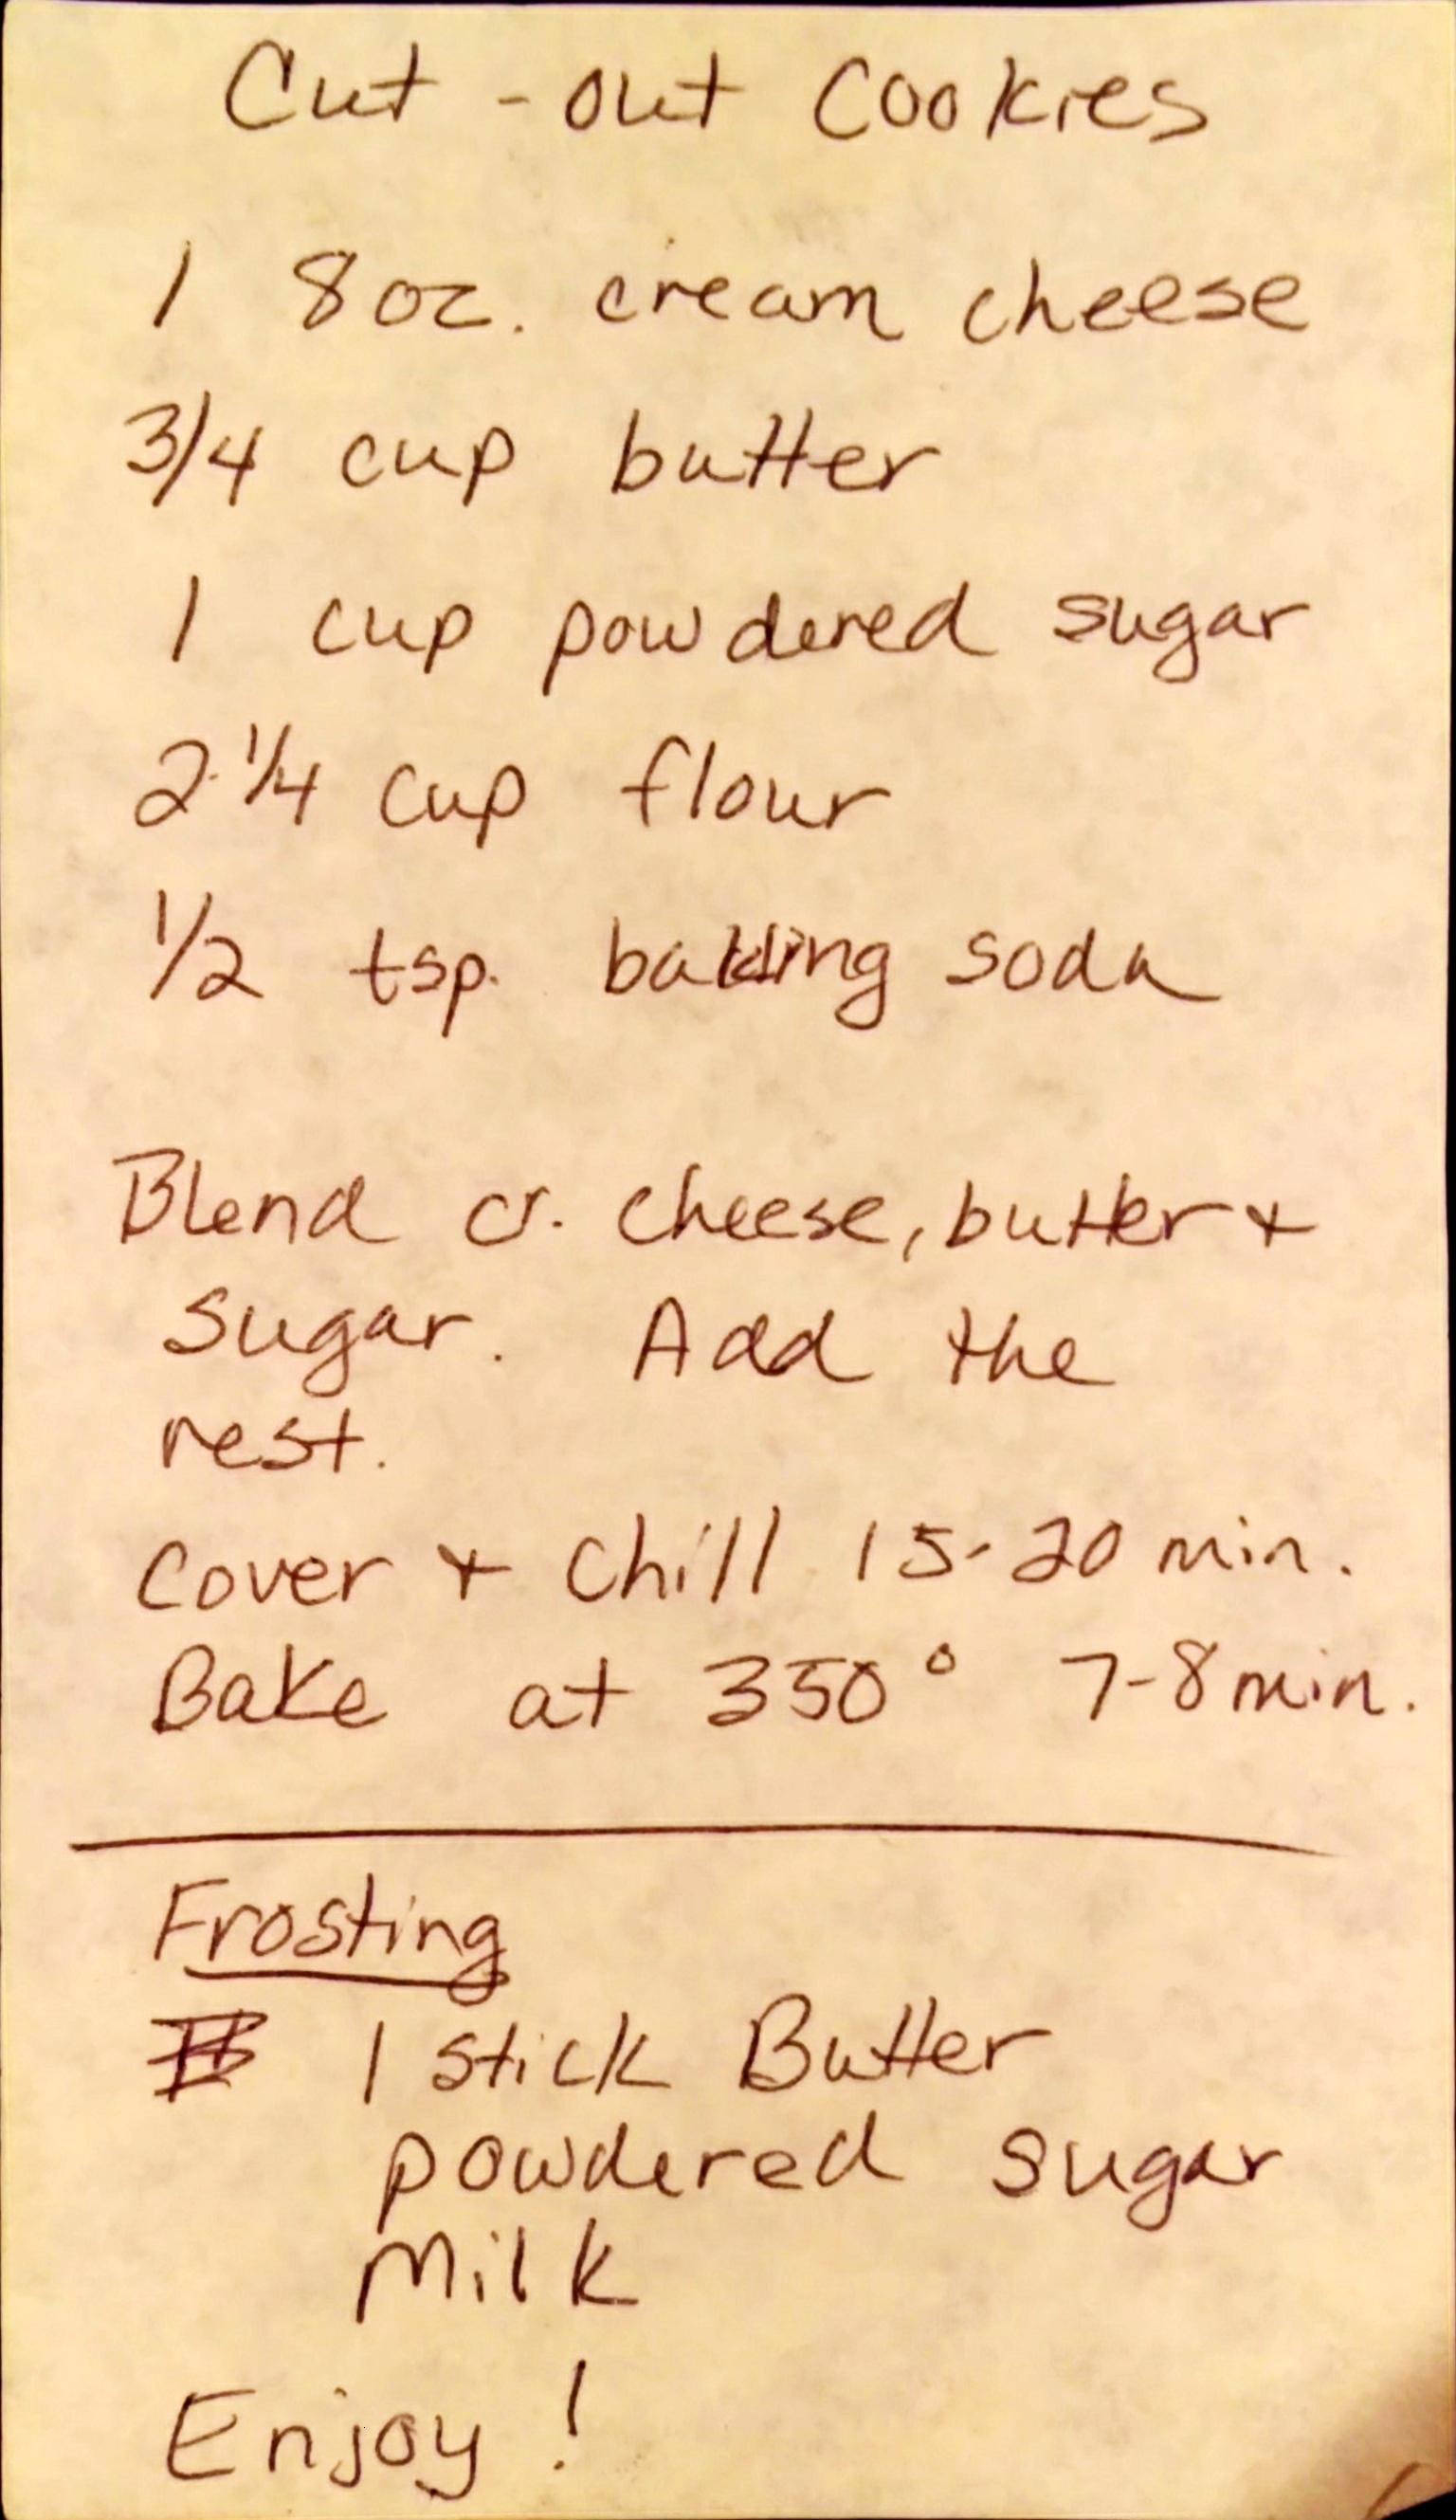 Cut-out Cookies
1 8 oz. cream cheese
3/4 cup butter
1 cup powdered sugar
2 1/4 cup flour
1/2 tsp. baking soda
Blend cr. cheese, butter +
sugar. Add the
rest.
Cover + Chill 15-20 min.
Bake at 350° 7-8 min.
Frosting
1 stick Butter
powdered sugar
Milk
Enjoy!